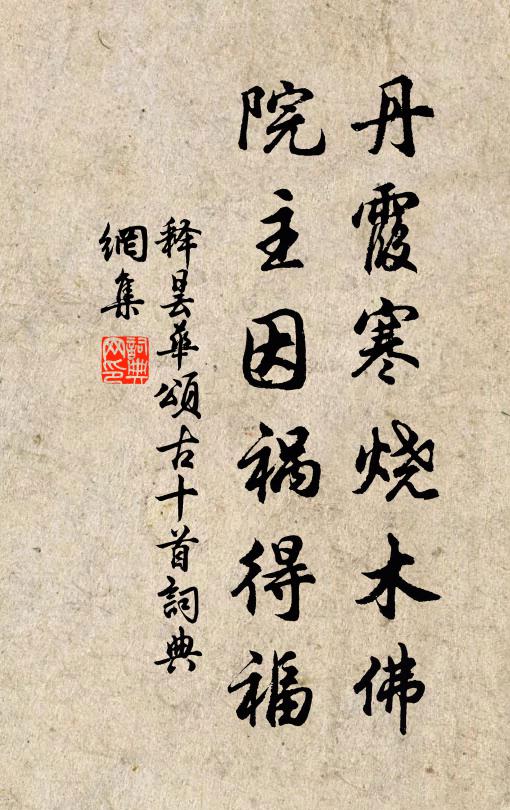 丹霞寒烧木佛
院主因祸得福
释昙华頌古十首詞典
網集
詞典
网印